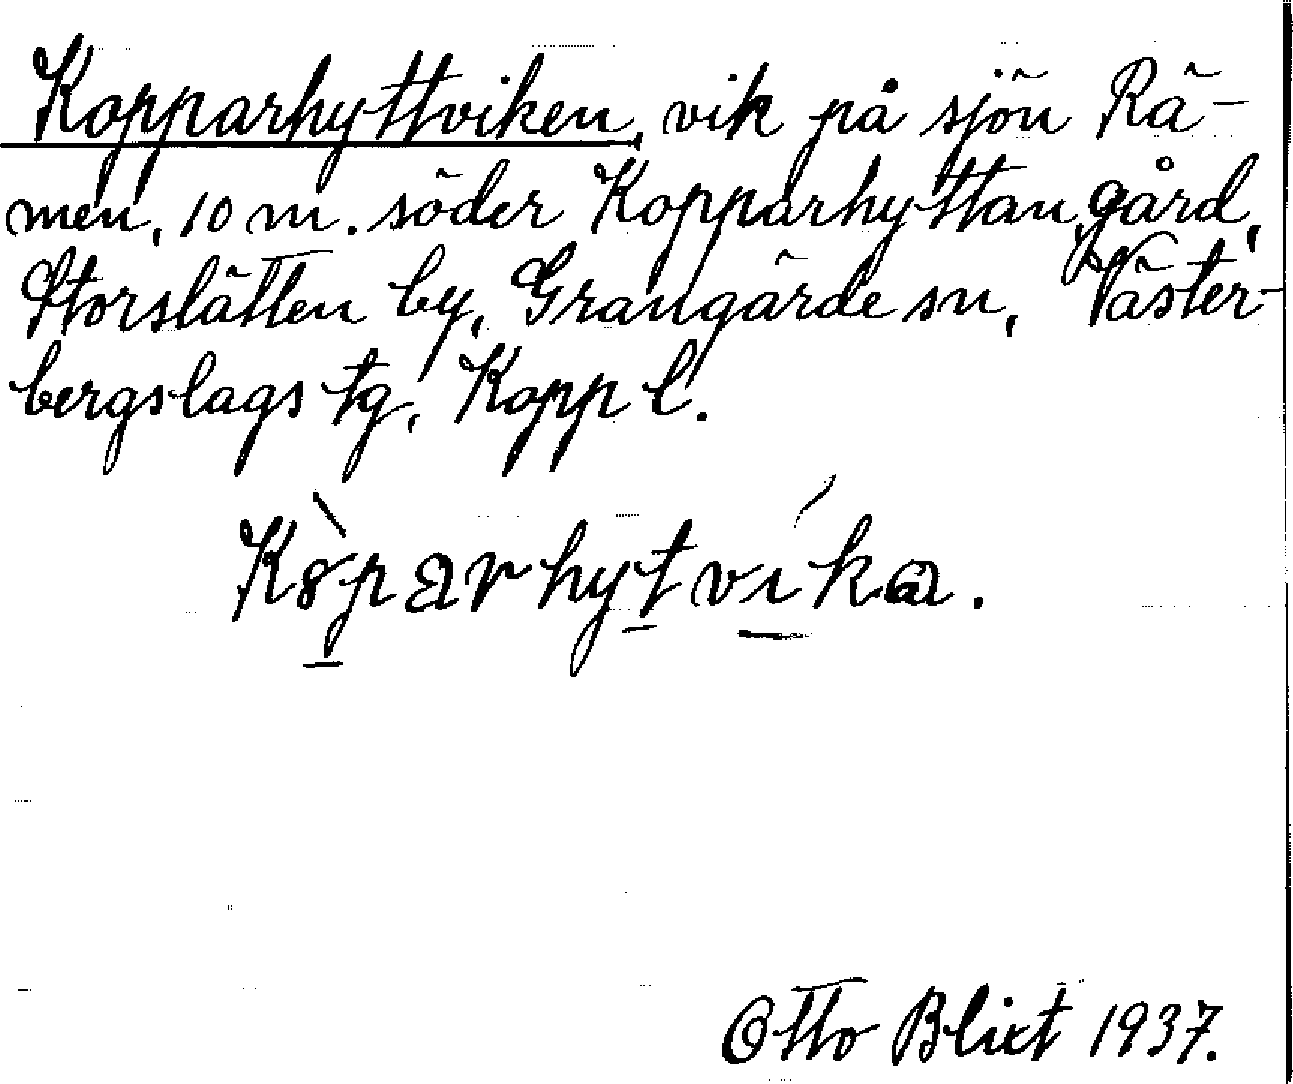 Kopparhyttviken, vik på sjön Rä-
men, 10 m. söder Kopparhyttan, gård,
Storslätten by, Grangärde sn, Väster-
bergslags tg, Kopp l.
Kòparhytvíka.
Otto Blixt 1937.